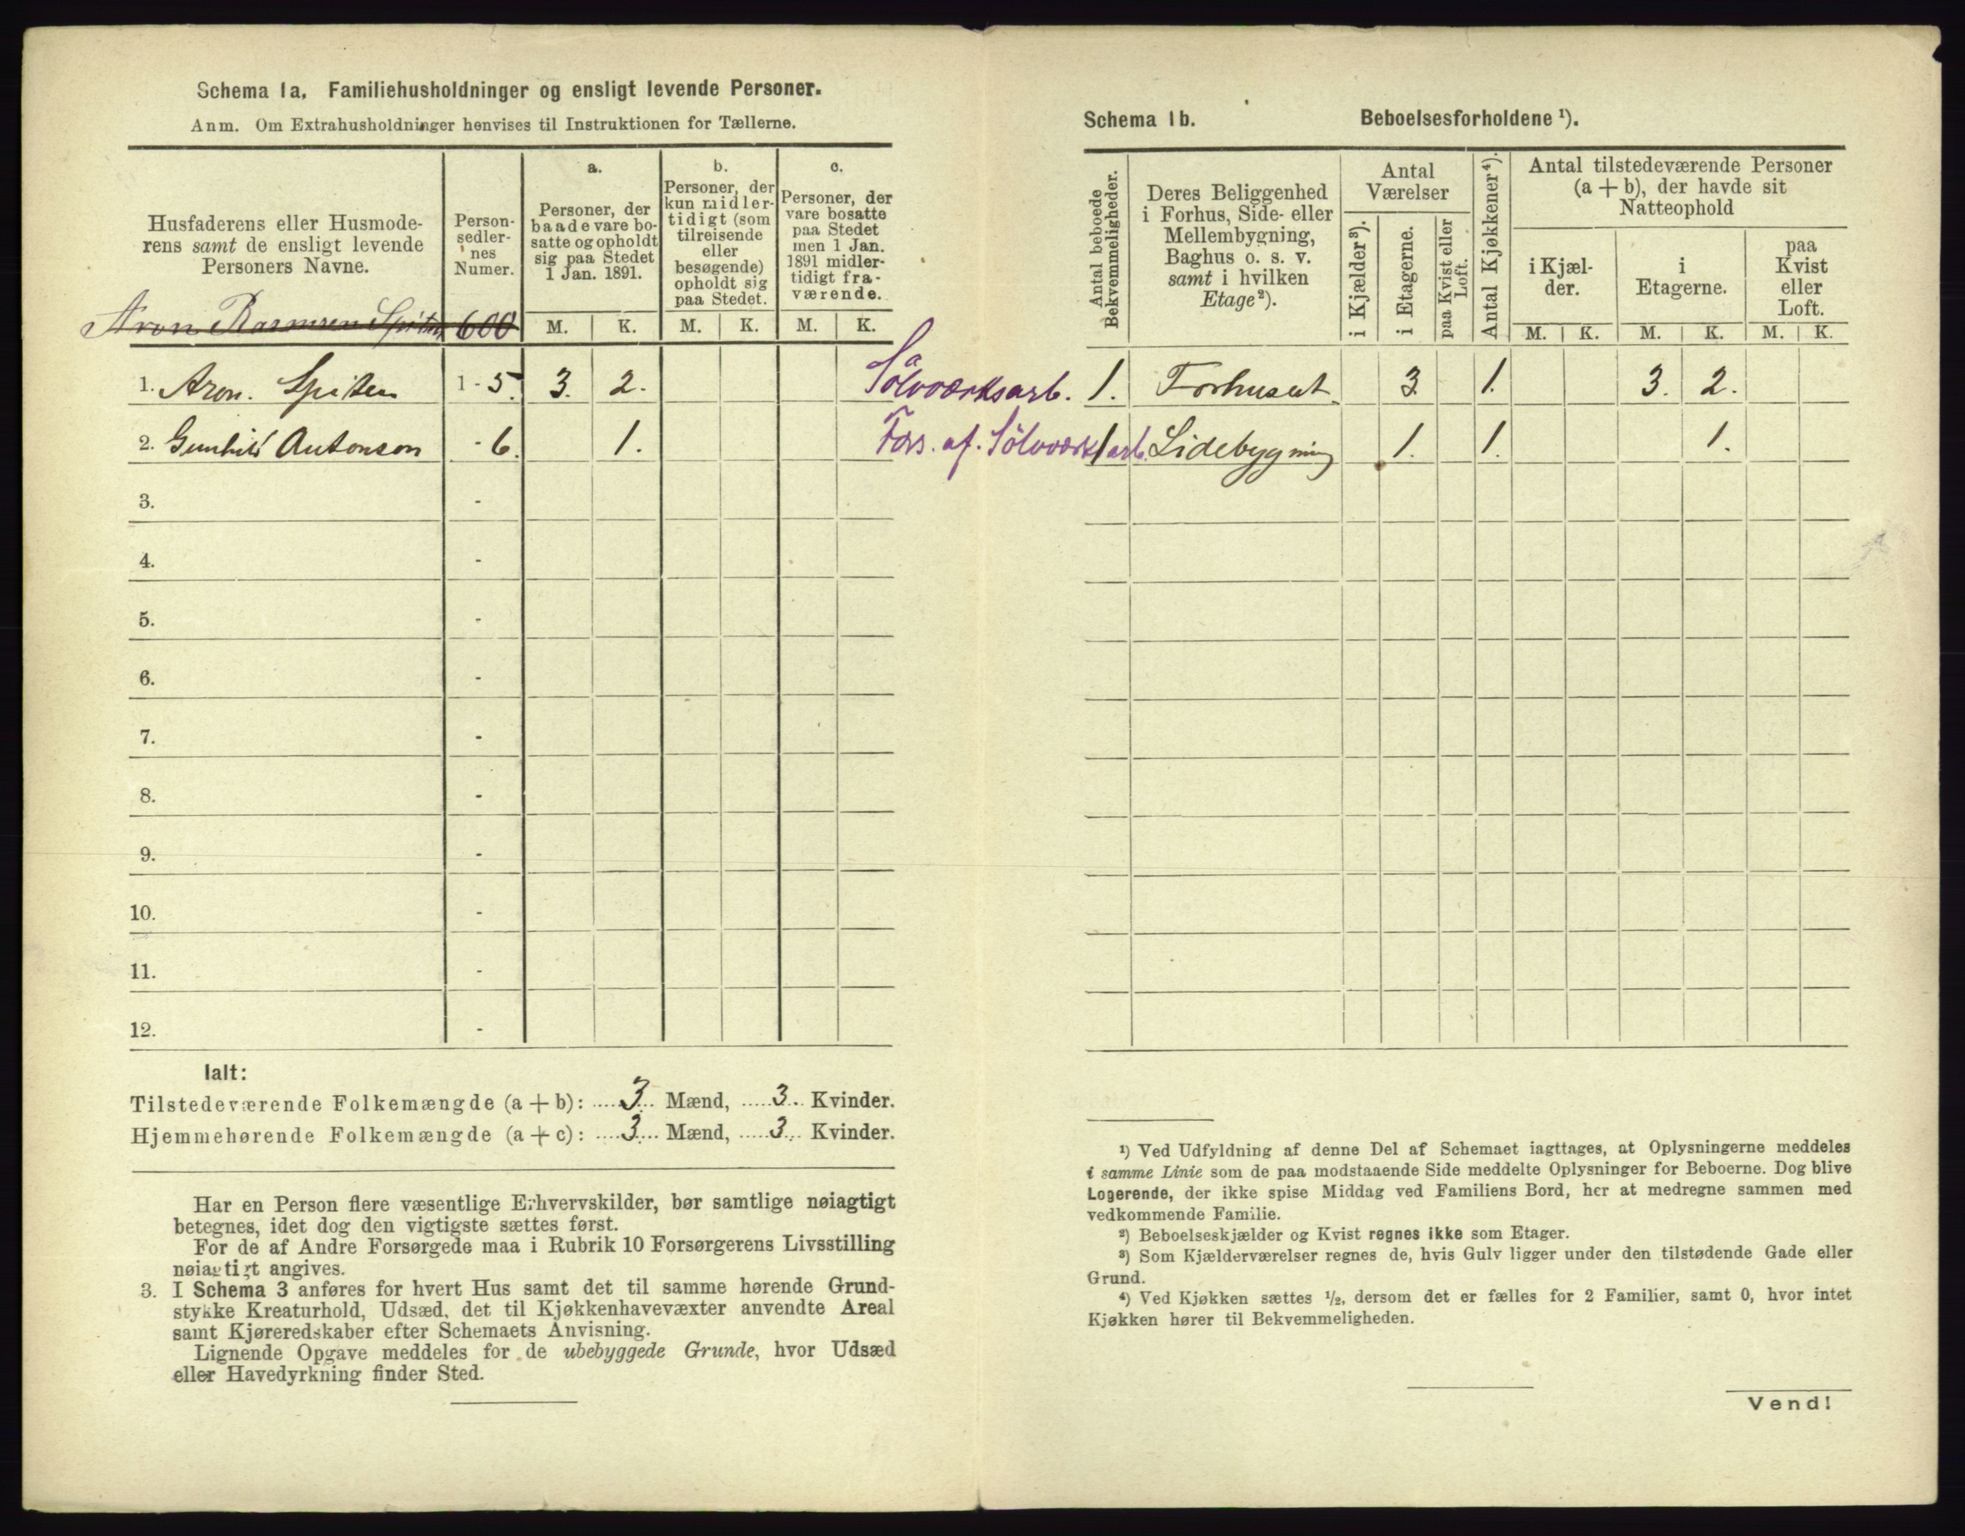 Schema 1a. Familiehusholdninger og ensligt levende Personer.
Anm. Om Extrahusholdninger henvises til Instruktionen for Tællerne.
Husfaderens eller Husmode-
rens samt de ensligt levende
Personers Navne.
Person-
sedler-
nes
Numer.
a.
Personer, der
baade vare bo-
satte og opholdt
sig paa Stedet
1 Jan. 1891.
b.
Personer, der
kun midler-
tidigt (som
tilreisende
eller
besøgende)
opholdt sig
paa Stedet.
c.
Personer, der
vare bosatte
paa Stedet
men 1 Jan.
1891 midler-
tidigt fra-
værende.
M. K. M. K. M. K.
Aron Rasmusen Spiten 600
1. Aron. Spiten 1 - 5. 3. 2. Sølvværksarb.
2. Gunhild Antonson - 6. 1. Fors. af. Sølvværksarb.
3. -
4. -
5. -
6. -
7. -
8. -
9. -
10. -
11. -
12. -
Ialt:
Tilstedeværende Folkemængde (a + b): 3 Mænd, 3 Kvinder.
Hjemmehørende Folkemængde (a + c): 3 Mænd, 3 Kvinder.
Har en Person flere væsentlige Erhvervskilder, bør samtlige nøiagtigt
betegnes, idet dog den vigtigste sættes først.
For de af Andre Forsørgede maa i Rubrik 10 Forsørgerens Livsstilling
nøiagtigt angives.
3. I Schema 3 anføres for hvert Hus samt det til samme hørende Grund-
stykke Kreaturhold, Udsæd, det til Kjøkkenhavevæxter anvendte Areal
samt Kjøreredskaber efter Schemaets Anvisning.
Lignende Opgave meddeles for de ubebyggede Grunde, hvor Udsæd
eller Havedyrkning finder Sted.
Schema 1b. Beboelsesforholdene ¹).
Antal beboede
Bekvemmeligheder.
Deres Beliggenhed
i Forhus, Side- eller
Mellembygning,
Baghus o. s. v.
samt i hvilken
Etage ²).
Antal
Værelser
i Kjælder ³).
i Etagerne.
paa Kvist eller
Loft.
Antal Kjøkkener ⁴).
Antal tilstedeværende Personer
(a + b), der havde sit
Natteophold
i Kjæl-
der.
i
Etagerne.
paa
Kvist
eller
Loft.
M. K. M. K. M. K.
1. Forhuset 3. 1. 3. 2.
1 Sidebygning 1. 1. 1.
¹) Ved Udfyldning af denne Del af Schemaet iagttages, at Oplysningerne meddeles
i samme Linie som de paa modstaaende Side meddelte Oplysninger for Beboerne. Dog blive
Logerende, der ikke spise Middag ved Familiens Bord, her at medregne sammen med
vedkommende Familie.
²) Beboelseskjælder og Kvist regnes ikke som Etager.
³) Som Kjælderværelser regnes de, hvis Gulv ligger under den tilstødende Gade eller
Grund.
⁴) Ved Kjøkken sættes ½, dersom det er fælles for 2 Familier, samt 0, hvor intet
Kjøkken hører til Bekvemmeligheden.
Vend!